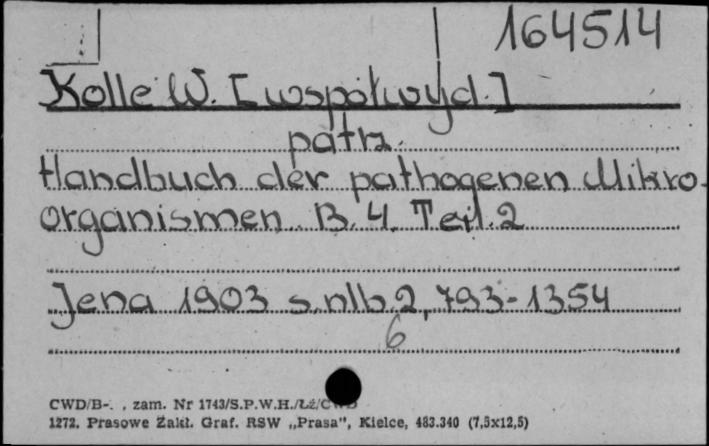 164514
Kolle W. [współwyd.]
patrz
Handbuch der pathogenen Mikro-
organismen B. 4. Teil. 2
Jena 1903 s. nlb. 2, 793-1354
6
CWD/B-. , zam. Nr 1743/S.P.W.H./Łź/CWD
1272. Prasowe Zakł. Graf. RSW „Prasa”, Kielce, 483.340 (7,5x12,5)